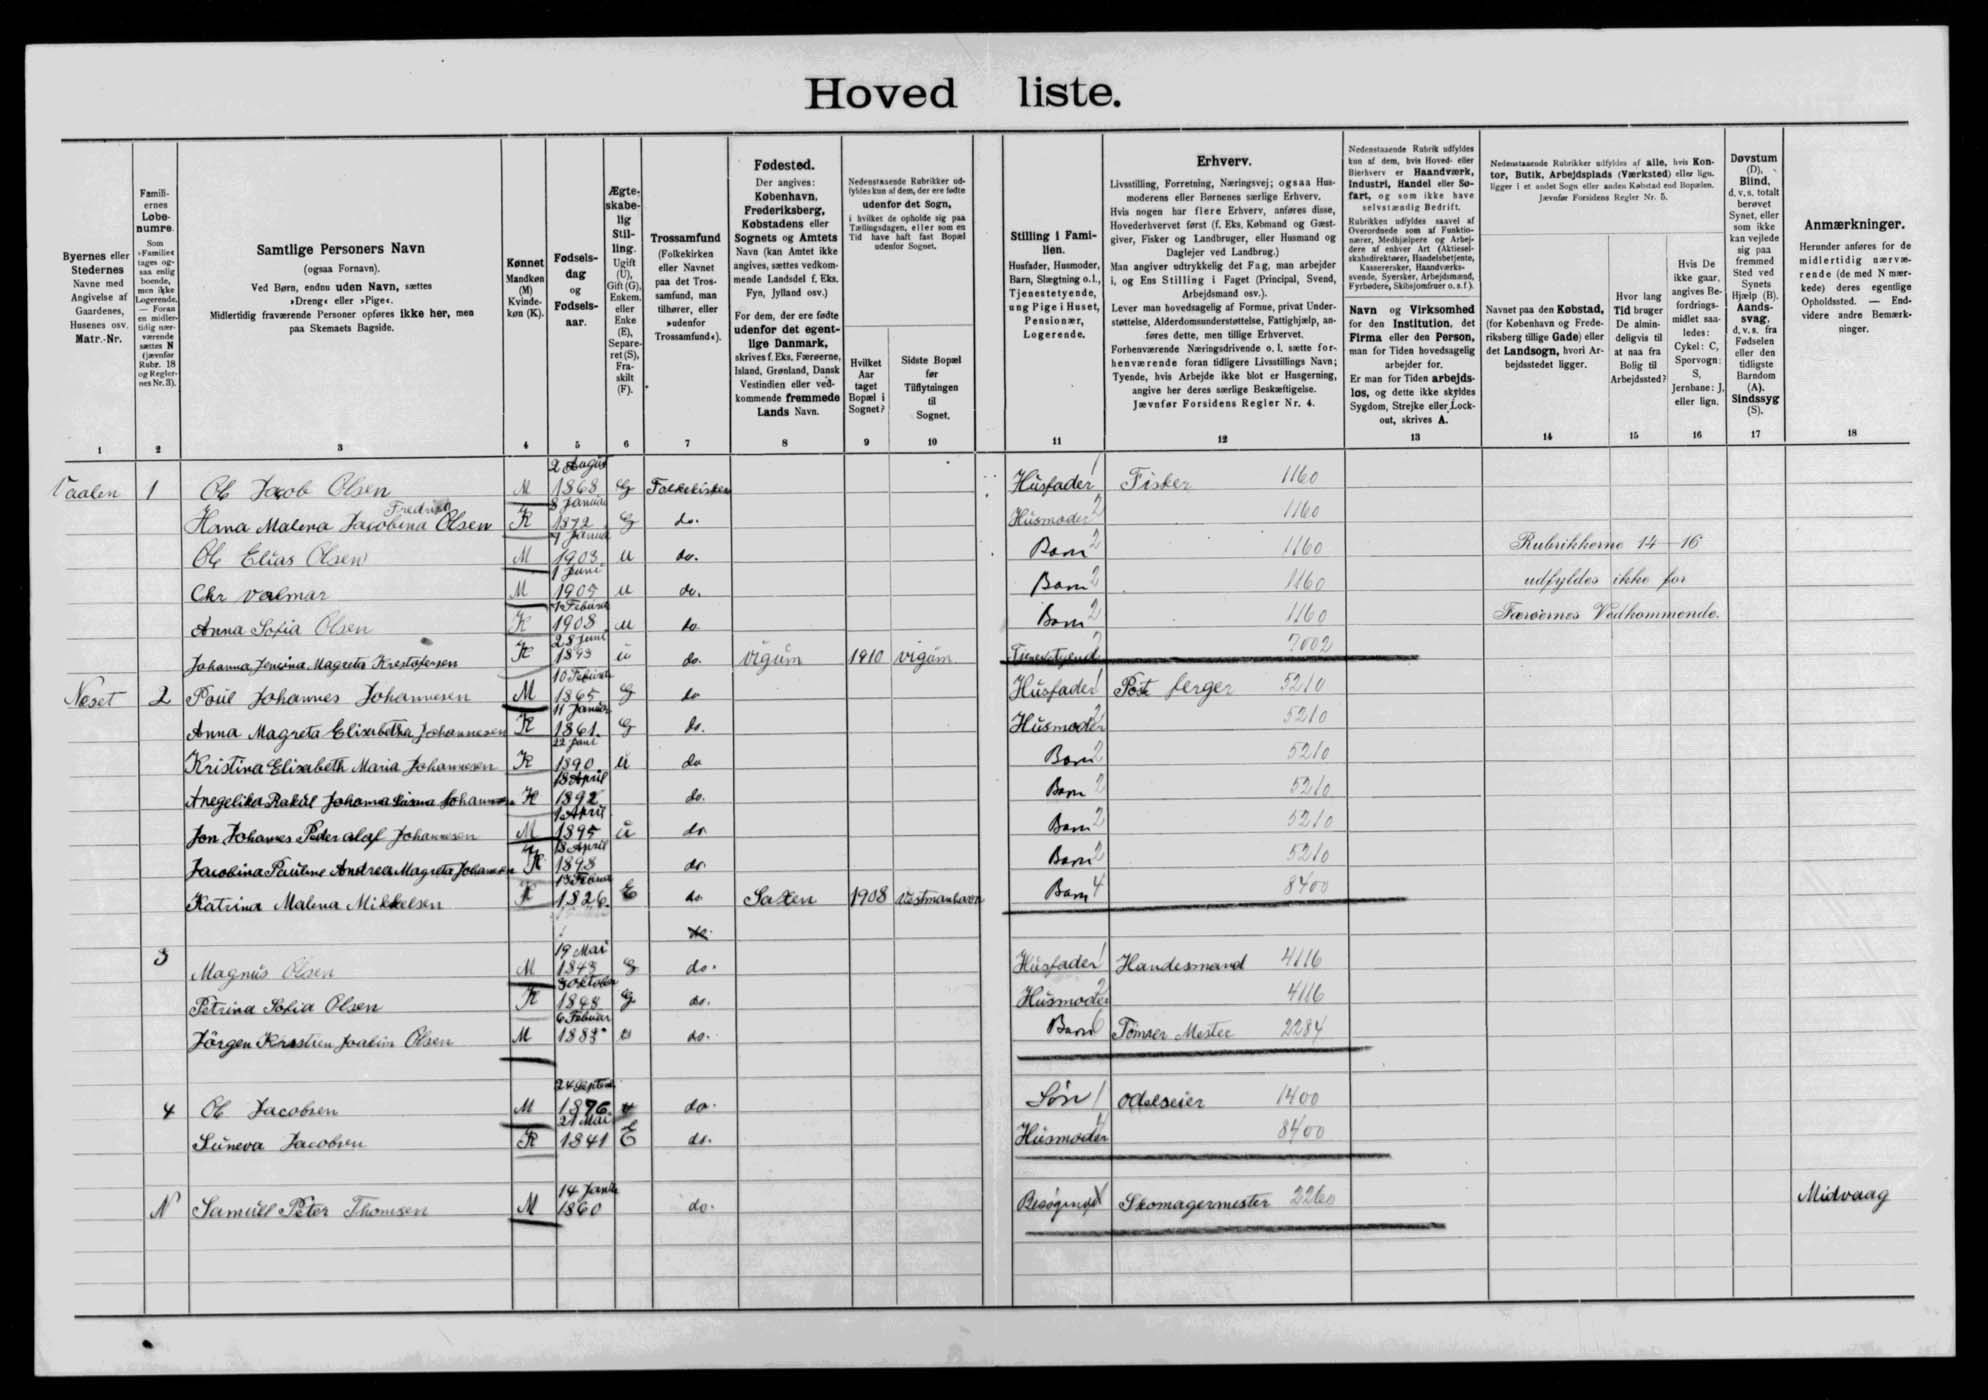 Hovedliste.
Byernes eller Stedernes Navne med Angivelse af Gaardenes, Husenes osv. Matr.-Nr.
Familiernes Løbenumre. Som »Familie« tages ogsaa enlig boende, men ikke Logerende. — Foran en midlertidig nærværende sættes N (jævnfør Rubr. 18 og Regler nes Nr. 3).
Samtlige Personers Navn (ogsaa Fornavn). Ved Børn, endnu uden Navn, sættes »Dreng« eller »Pige«. Midlertidig fraværende Personer opføres ikke her, men paa Skemaets Bagside.
Kønnet Mandkøn (M) Kvindekøn (K).
Fødselsdag og Fødselsaar.
Ægteskabelig Stilling. Ugift (U), Gift (G), Enkem. eller Enke (E), Separeret (S), Fraskilt (F).
Trossamfund (Folkekirken eller Navnet paa det Trossamfund, man tilhører, eller »udenfor Trossamfund«).
Fødested. Der angives: København, Frederiksberg, Købstadens eller Sognets og Amtets Navn (kan Amtet ikke angives, sættes vedkommende Landsdel f. Eks. Fyn, Jylland osv.) For dem, der ere fødte udenfor det egentlige Danmark, skrives f. Eks. Færøerne, Island, Grønland, Dansk Vestindien eller vedkommende fremmede Lands Navn.
Nedenstaaende Rubrikker udfyldes kun af dem, der ere fødte udenfor det Sogn, i hvilket de opholde sig paa Tællingsdagen, eller som en Tid have haft fast Bopæl udenfor Sognet.
Hvilket Aar taget Bopæl i Sognet?
Sidste Bopæl før Tilflytningen til Sognet.
Stilling i Familien. Husfader, Husmoder, Barn, Slægtning o.l., Tjenestetyende, ung Pige i Huset, Pensionær, Logerende.
Erhverv. Livsstilling, Forretning, Næringsvej; ogsaa Husmoderens eller Børnenes særlige Erhverv. Hvis nogen har flere Erhverv, anføres disse, Hovederhvervet først (f. Eks. Købmand og Gæstgiver, Fisker og Landbruger, eller Husmand og Daglejer ved Landbrug.) Man angiver udtrykkelig det Fag, man arbejder i, og Ens Stilling i Faget (Principal, Svend, Arbejdsmand osv.). Lever man hovedsagelig af Formue, privat Understøttelse, Alderdomsunderstøttelse, Fattighjælp, anføres dette, men tillige Erhvervet. Forhenværende Næringsdrivende o. l. sætte forhenværende foran tidligere Livsstillings Navn; Tyende, hvis Arbejde ikke blot er Husgerning, angive her deres særlige Beskæftigelse. Jævnfør Forsidens Regler Nr. 4.
Nedenstaaende Rubrik udfyldes kun af dem, hvis Hoved- eller Bierhverv er Haandværk, Industri, Handel eller Søfart, og som ikke have selvstændig Bedrift.
Rubrikken udfyldes saavel af Overordnede som af Funktionærer, Medhjælpere og Arbejdere af enhver Art (Aktieselskabsdirektører, Handelsbetjente, Kasserersker, Haandværkssvende, Syersker, Arbejdsmænd, Fyrbødere, Skibsjomfruer o. s. f.).
Navn og Virksomhed for den Institution, det Firma eller den Person, man for Tiden hovedsagelig arbejder for. Er man for Tiden arbejdsløs, og dette ikke skyldes Sygdom, Strejke eller Lockout, skrives A.
Nedenstaaende Rubrikker udfyldes af alle, hvis Kontor, Butik, Arbejdsplads (Værksted) eller lign. ligger i et andet Sogn eller anden Købstad end Bopælen. Jævnfør Forsidens Regler Nr. 5.
Navnet paa den Købstad, (for København og Frederiksberg tillige Gade) eller det Landsogn, hvori Arbejdsstedet ligger.
Hvor lang Tid bruger De almindeligvis til at naa fra Bolig til Arbejdssted?
Hvis De ikke gaar, angives Befordringsmidlet saaledes: Cykel: C, Sporvogn: S, Jernbane: J, eller lign.
Døvstum (D), Blind, d. v. s. totalt berøvet Synet, eller som ikke kan vejlede sig paa fremmed Sted ved Synets Hjælp (B). Aandssvag, d. v. s. fra Fødselen eller den tidligste Barndom (A). Sindssyg (S).
Anmærkninger. Herunder anføres for de midlertidig nærværende (de med N mærkede) deres egentlige Opholdssted. — Endvidere andre Bemærkninger.
1 2 3 4 5 6 7 8 9 10 11 12 13 14 15 16 17 18
1 Ole Jacob Olsen M 2 August 1868 G Folkekirken Husfader 1 Fisker 1160
Hana Malena Jacobina Fredrikk Olsen K 8 Januar 1872 G do. Husmoder 2 1160
Ole Elias Olsen M 7 Januar 1903 u do. Barn 2 1160 Rubrikkerne 14-16
Chr Valmar M 1 Juni 1905 u do. Barn 2 1160 udfyldes ikke for
Anna Sofia Olsen K 1 Februar 1908 u do Barn 2 1160 Færøernes Vedkommende.
Johanna Jensina Magreta Krestofersen K 28 Juni 1893 u do. vigum 1910 vigum Tjenestetyende 7002
Neset 2 Poul Johannes Johannesen M 10 Februar 1865 G do Husfader 1 Post berger 5210
Anna Magreta Elisabetha Johannesen K 11 Januar 1861 G do. Husmoder 2 5210
Kristina Elisabeth Maria Johannesen K 22 Juni 1890 u do Barn 2 5210
Anegelika Rakul Johanna Susana Johannesen K 18 April 1892 do. Barn 2 5210
Jon Johannes Peder olaf Johannesen M 1 April 1895 u do. Barn 2 5210
Jacobina Pauline Andrea Magreta Johannesen K 18 April 1898 do. Barn 2 5210
Katrina Malena Mikkelsen K 1826 E do Saxen 1908 Vestmanhavn Barn 4 8400
do.
3 Magnus Olsen M 19 Mai 1843 G do. Husfader 1 Handesmand 4116
Petrina Sofia Olsen K oktober G do. Husmoder 2 4116
Jörgen Kristien Joakim Olsen M 6 Februar 1883 do. Barn 6 Tömrer Mester 2284
4 Ole Jacobsen M 24 Septem 1876 u do. Sön 1 odelseier 1400
Suneva Jacobsen K 21 Mai 1841 E do. Husmoder 8400
N Samuel Peter Thomsen M 14 Janua 1860 do. Besøgende Skomagermester 2260 Midvaag